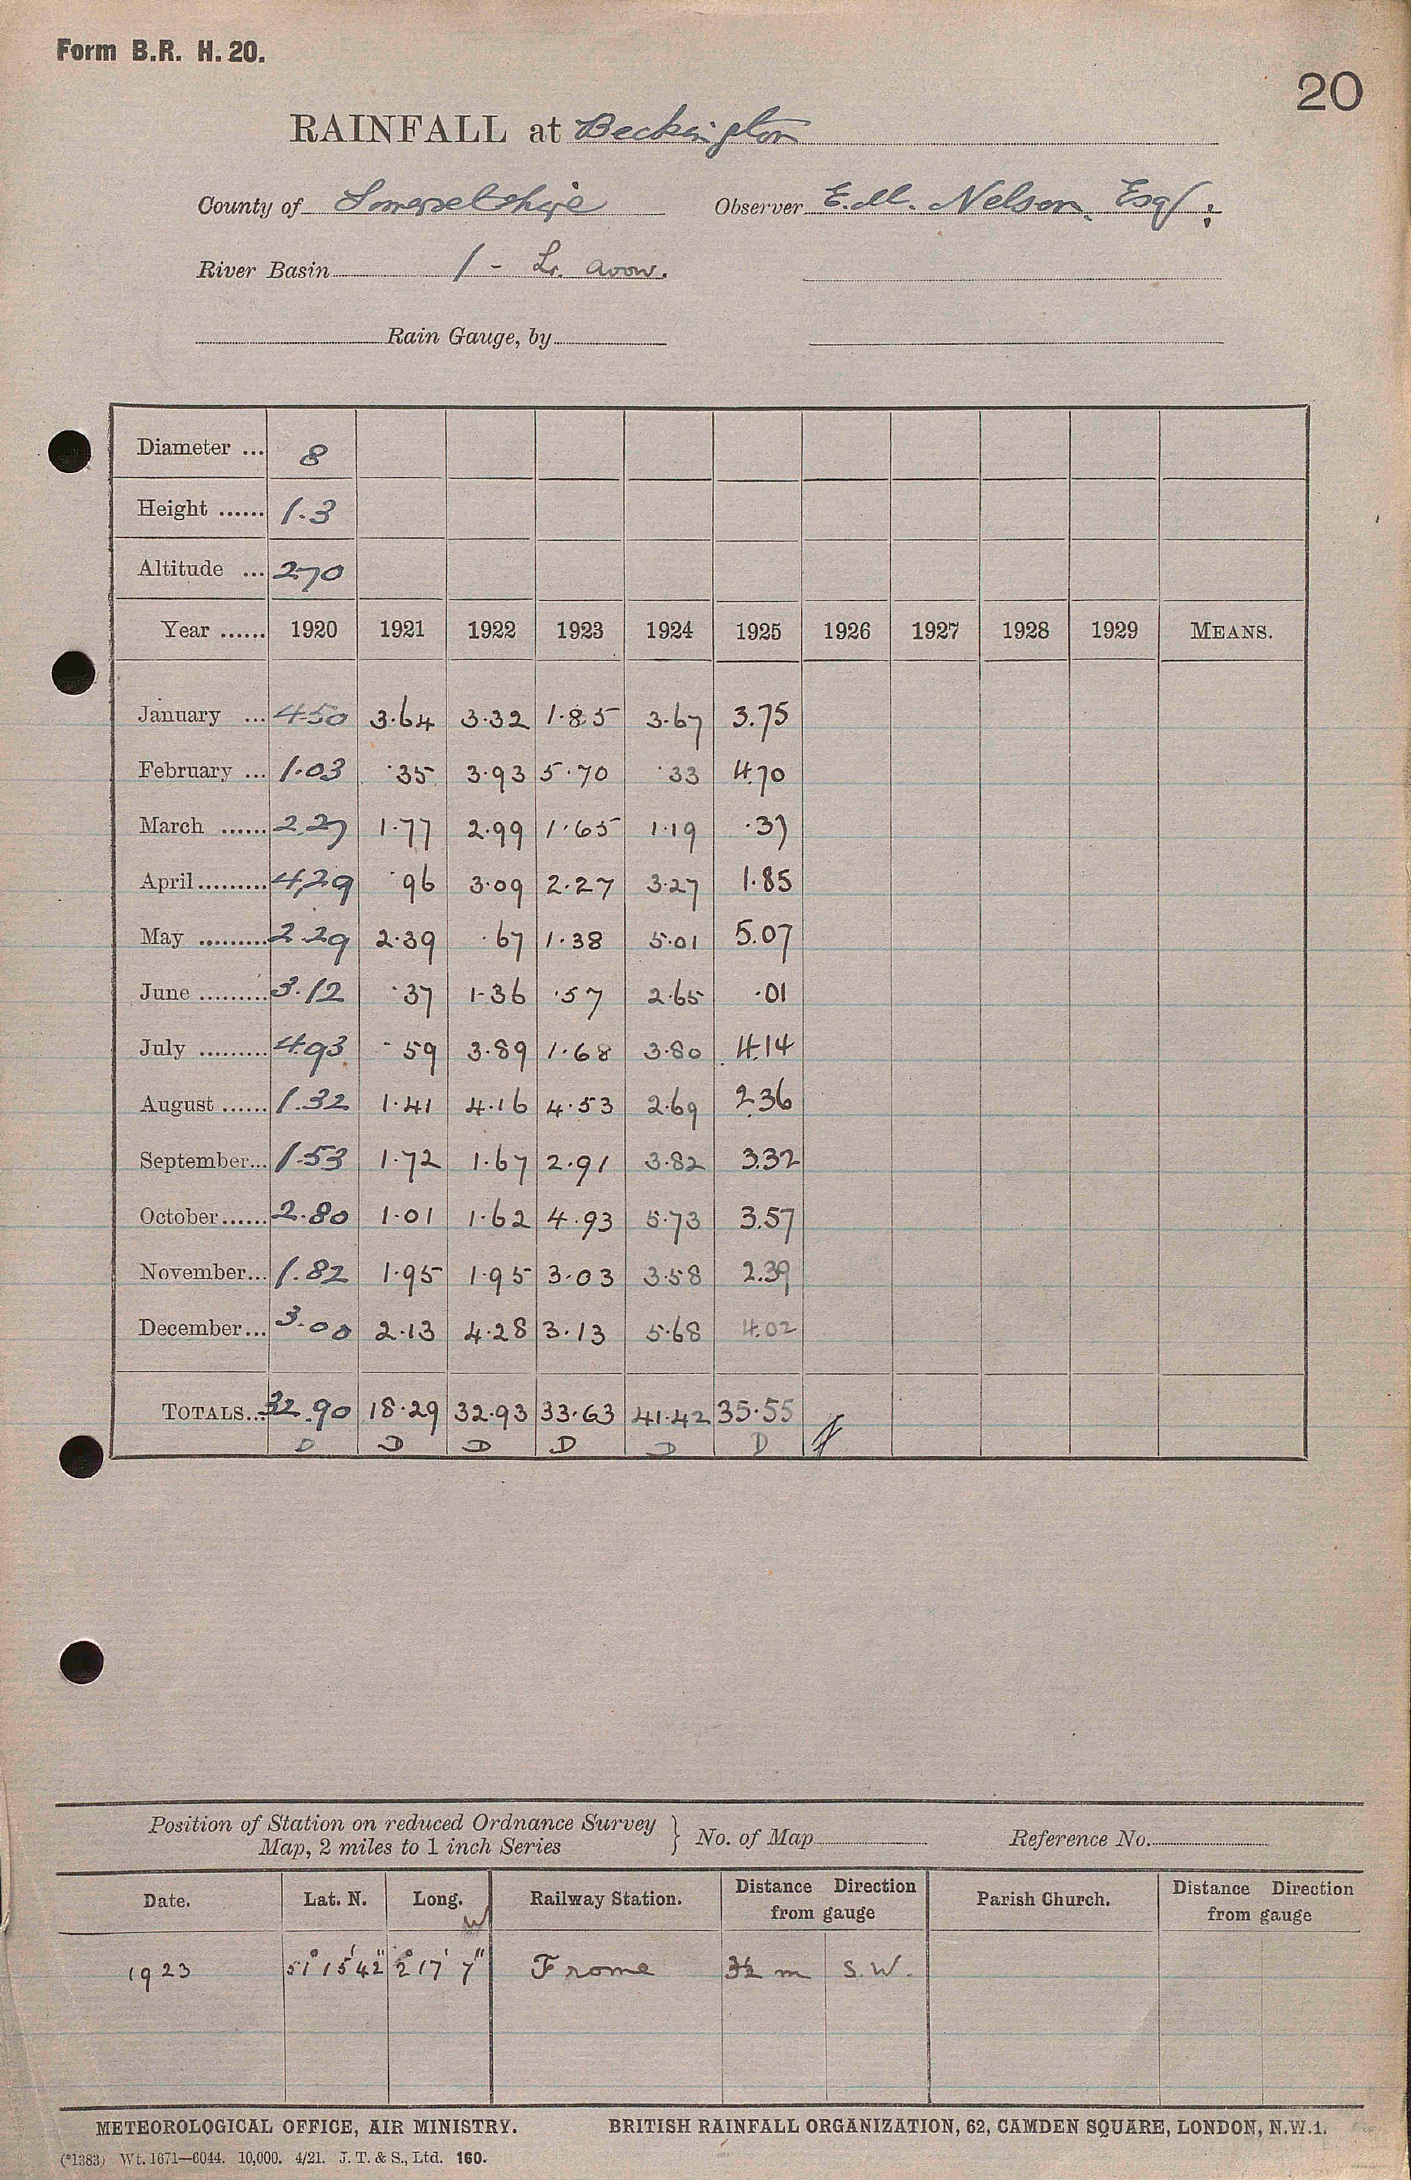 Form B.R. H. 20.
20
RAINFALL at Beckington
County of Somersetshire Observer E. M. Nelson. Esq:
River Basin 1 - Lr. Avon.
Rain Gauge, by
Diameter ... 8
Height ...... 1.3
Altitude ... 270
Year ...... 1920 1921 1922 1923 1924 1925 1926 1927 1928 1929 MEANS.
January ... 4.50 3.64 3.32 1.85 3.67 3.75
February ... 1.03 .35 3.93 5.70 .33 4.70
March ...... 2.27 1.77 2.99 1.65 1.19 .37
April ......... 4.29 .96 3.09 2.27 3.27 1.85
May ......... 2.29 2.39 .67 1.38 5.01 5.07
June ......... 3.12 .37 1.36 .57 2.65 .01
July ......... 4.93 .59 3.89 1.68 3.80 4.14
August ...... 1.32 1.41 4.16 4.53 2.69 2.36
September... 1.53 1.72 1.67 2.91 3.82 3.32
October...... 2.80 1.01 1.62 4.93 5.73 3.57
November... 1.82 1.95 1.95 3.03 3.58 2.39
December... 3.00 2.13 4.28 3.13 5.68 4.02
TOTALS... 32.90 18.29 32.93 33.63 41.42 35.55
D D D D D D
Position of Station on reduced Ordnance Survey
Map, 2 miles to 1 inch Series } No. of Map Reference No.
Date. Lat. N. Long. W Railway Station. Distance Direction from gauge Parish Church. Distance Direction from gauge
1923 51° 15' 42" 2° 17' 7" Frome 3½ m S.W.
METEOROLOGICAL OFFICE, AIR MINISTRY. BRITISH RAINFALL ORGANIZATION, 62, CAMDEN SQUARE, LONDON, N.W.1.
(*1383) Wt. 1671—6044. 10,000. 4/21. J. T. & S., Ltd. 160.